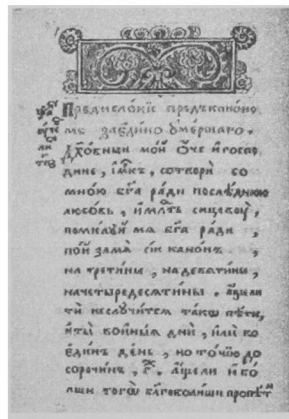 Предисловіе предъканоно
мъ заединоумершаго.
Дх҃овный мой ѻ҆́че и҆ госпо
дине, і҆м҃къ, сотвори со
мною бг҃а ради послѣднюю
любовь, и҆ млⷭ҇ть сицевꙋ,
помилуй мѧ бг҃а ради,
пой замѧ сїи канонъ,
на третины, на девѧтины,
на четыредесѧтины. аще ли
ти неслучитсѧ такѡ пѣти,
и҆ ты во и҆ны́ѧ дни, и҆ли ко
є҆динъ день, но точїю до
сорочинъ, г҃. аще ли и҆ бо
лши тогѡ бл҃говолиши пропѣти